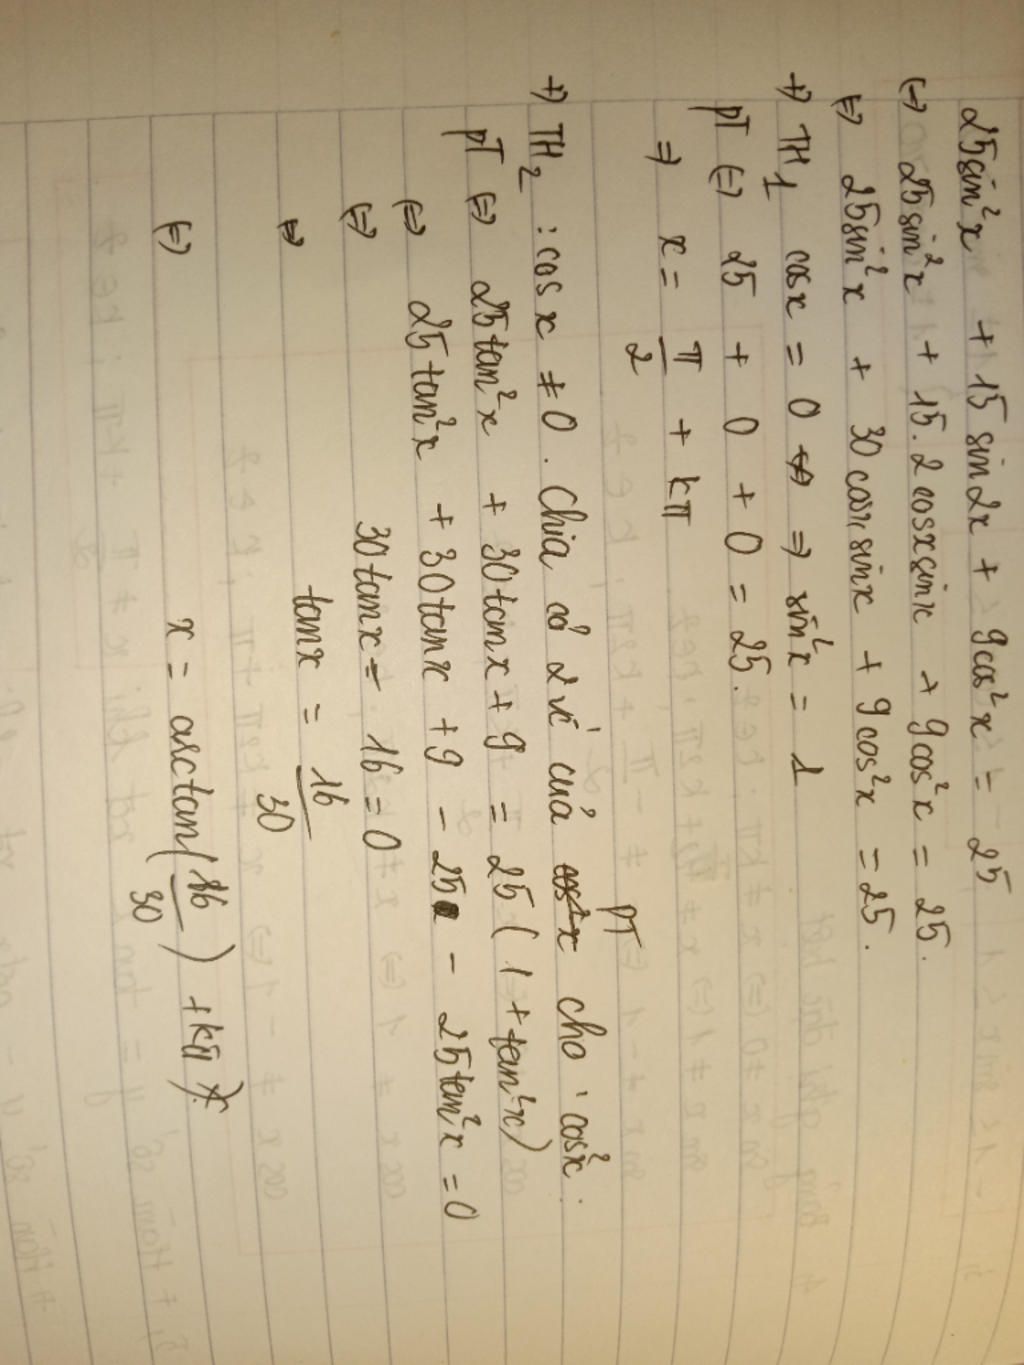 25sin²x + 15 sin2x + 9cos²x = 25
(=) 25sin²x + 15.2cosxsinx + 9cos²x = 25.
(=) 25sin²x + 30cosxsinx + 9cos²x = 25.
+) TH1 cosx = 0 => sin²x = 1
PT (=) 25 + 0 + 0 = 25.
=) x = π/2 + kπ
+) TH2 : cos x ≠ 0 . Chia cả 2 vế cuả PT cho cos²x.
PT (=) 25tan²x + 30tanx + 9 = 25(1 + tan²x)
(=) 25tan²x + 30tanx + 9 - 25 - 25tan²x = 0
(=) 30tanx - 16 = 0
(=) tanx = 16/30
(=) x = arctan(16/30) + kπ